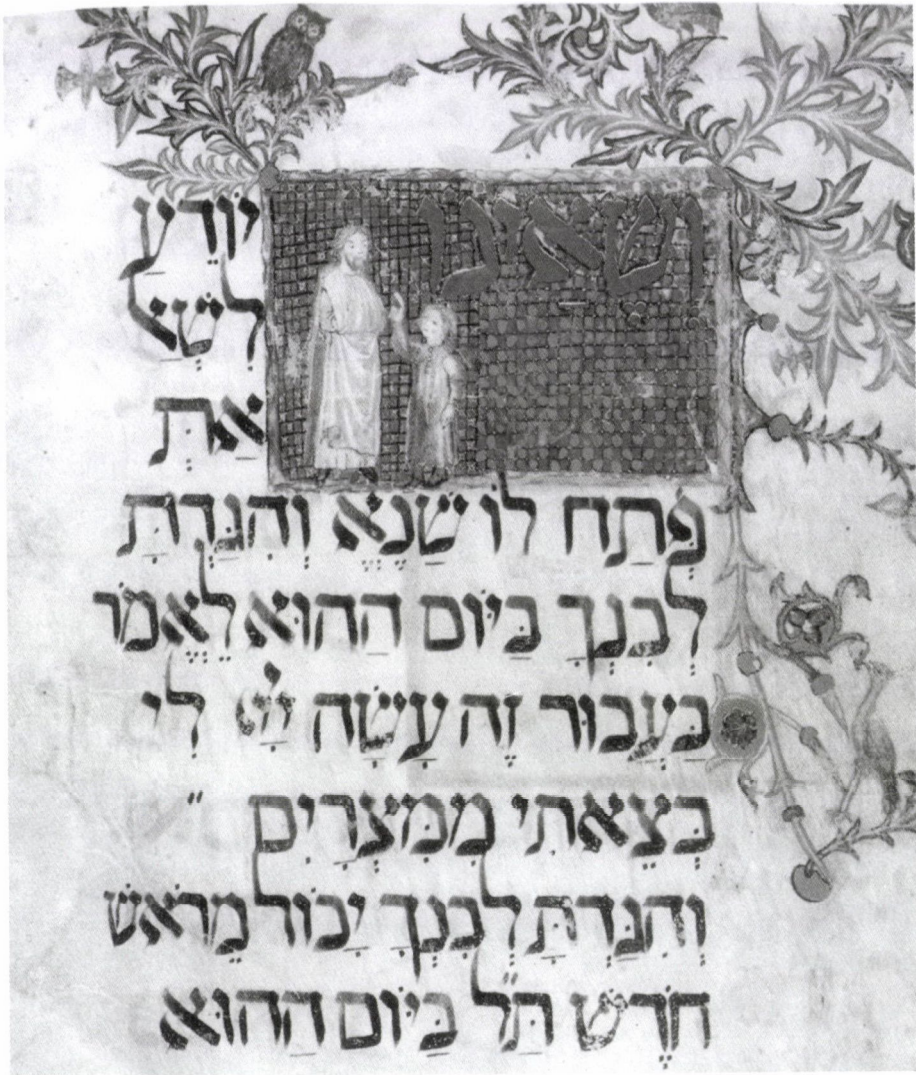 וְשֶׁאֵינוֹ יוֹדֵעַ
לִשְׁאֹל
אַתְּ
פְּתַח לוֹ שֶׁנֶּאֱ וְהִגַּדְתָּ
לְבִנְךָ בַּיּוֹם הַהוּא לֵאמֹר
בַּעֲבוּר זֶה עָשָׂה יְיָ לִי
בְּצֵאתִי מִמִּצְרָיִם ״
וְהִגַּדְתָּ לְבִנְךָ יָכוֹל מֵרֹאשׁ
חֹדֶשׁ תַּ״ל בַּיּוֹם הַהוּא